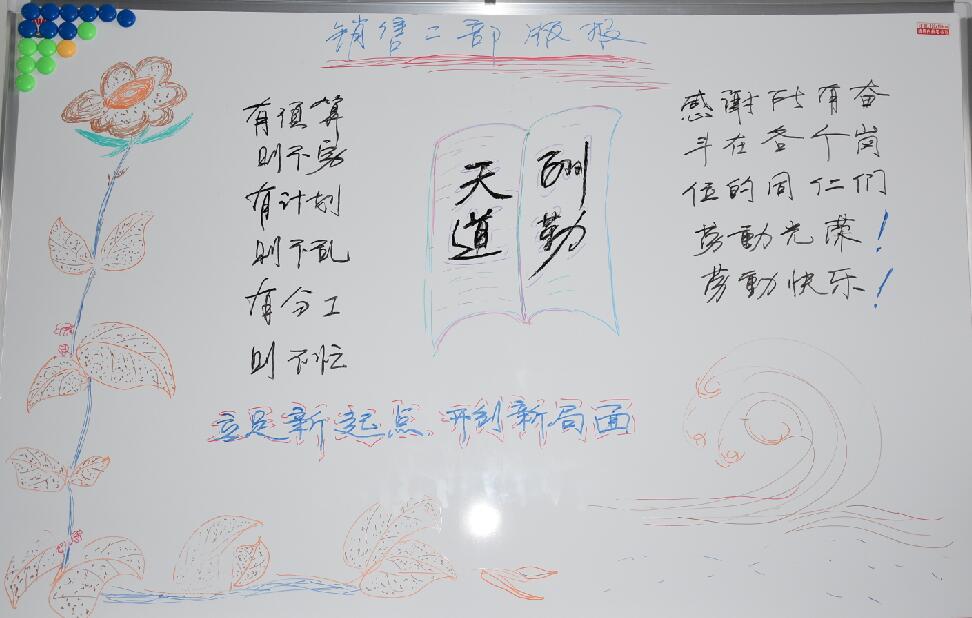 销售二部版报
有预算
则不穷
有计划
则不乱
有分工
则不忙
天道
酬勤
感谢所有奋
斗在各个岗
位的同仁们
劳動光荣！
劳動快乐！
立足新起点 开创新局面